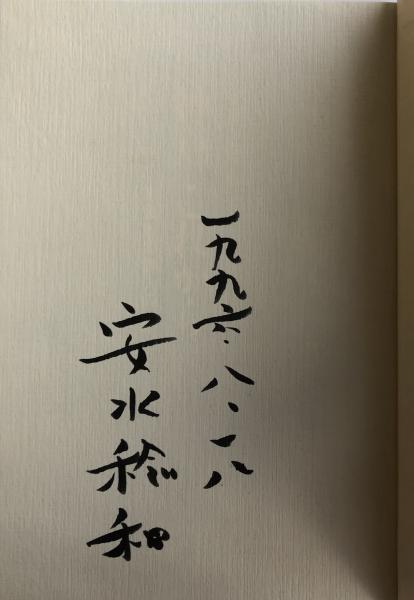 一九九六・八、一八
安水稔和